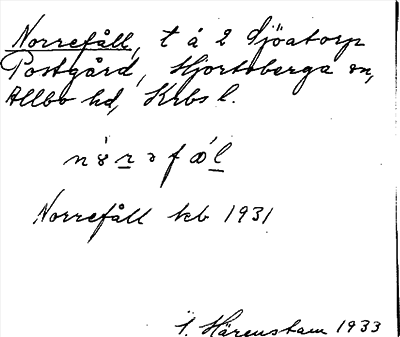 Norrefåll, t å 2 Sjöatorp
Postgård, Hjortsberga sn,
Allbo hd, Krbs l.
Norrefåll kb 1931
I. Härenstam 1933